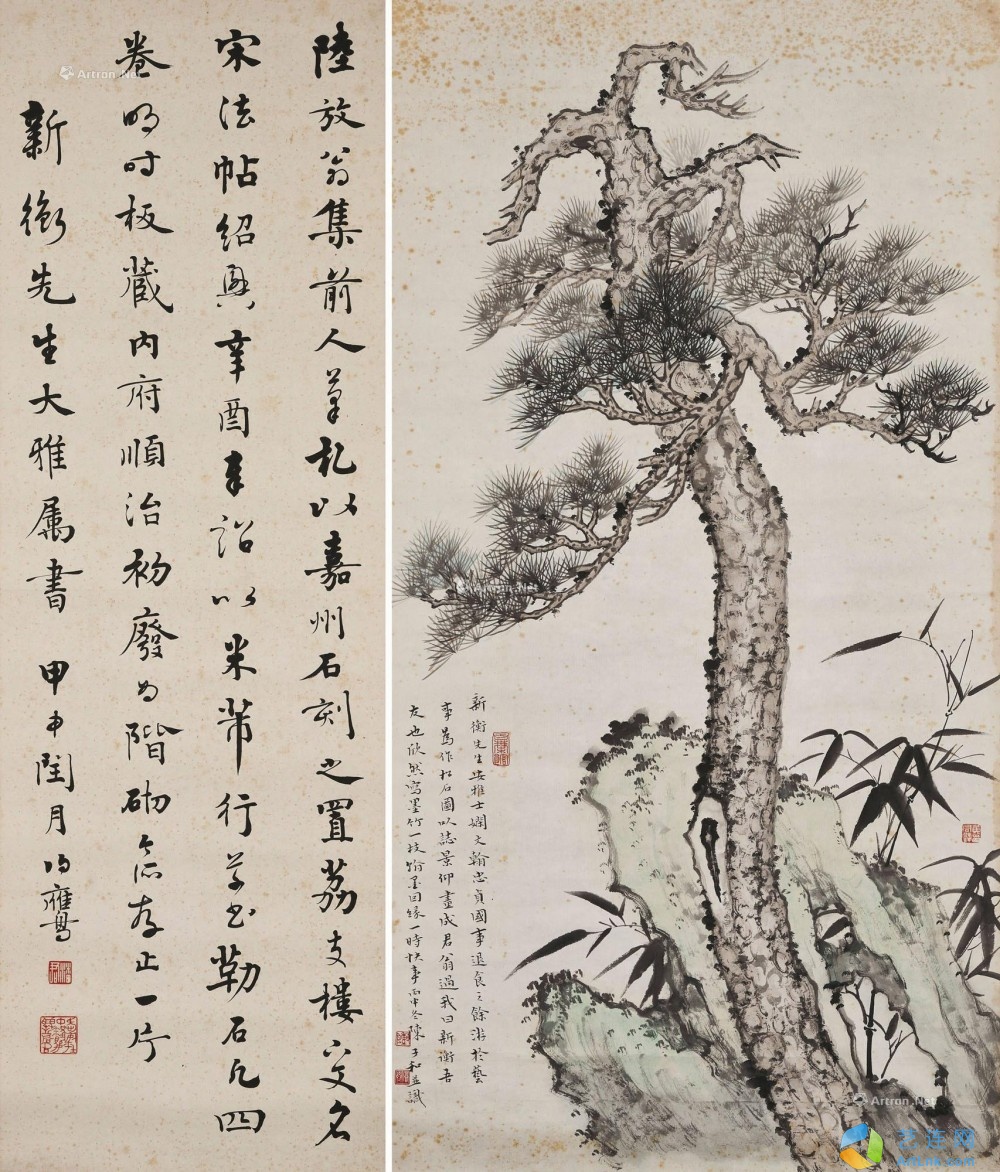 陸放翁集前人筆札以嘉州石刻之置荔支樓名
宋法帖紹興辛酉奉詔以米芾行草書勒石凡四
卷明時板藏内府順治初廢為階砌今存止一片
新衡先生大雅属書 甲申閏月
新衡先生安雅士嫻文翰忠貞國事退食之餘游於藝
事為作松石圖以誌景仰畫成君翁過我曰新衡吾
友也欣然寫墨竹一枝翰墨因緣一時快事丙申冬陳子和並識
Artron.Net
Artron.Net
艺连网
ArtLink.com